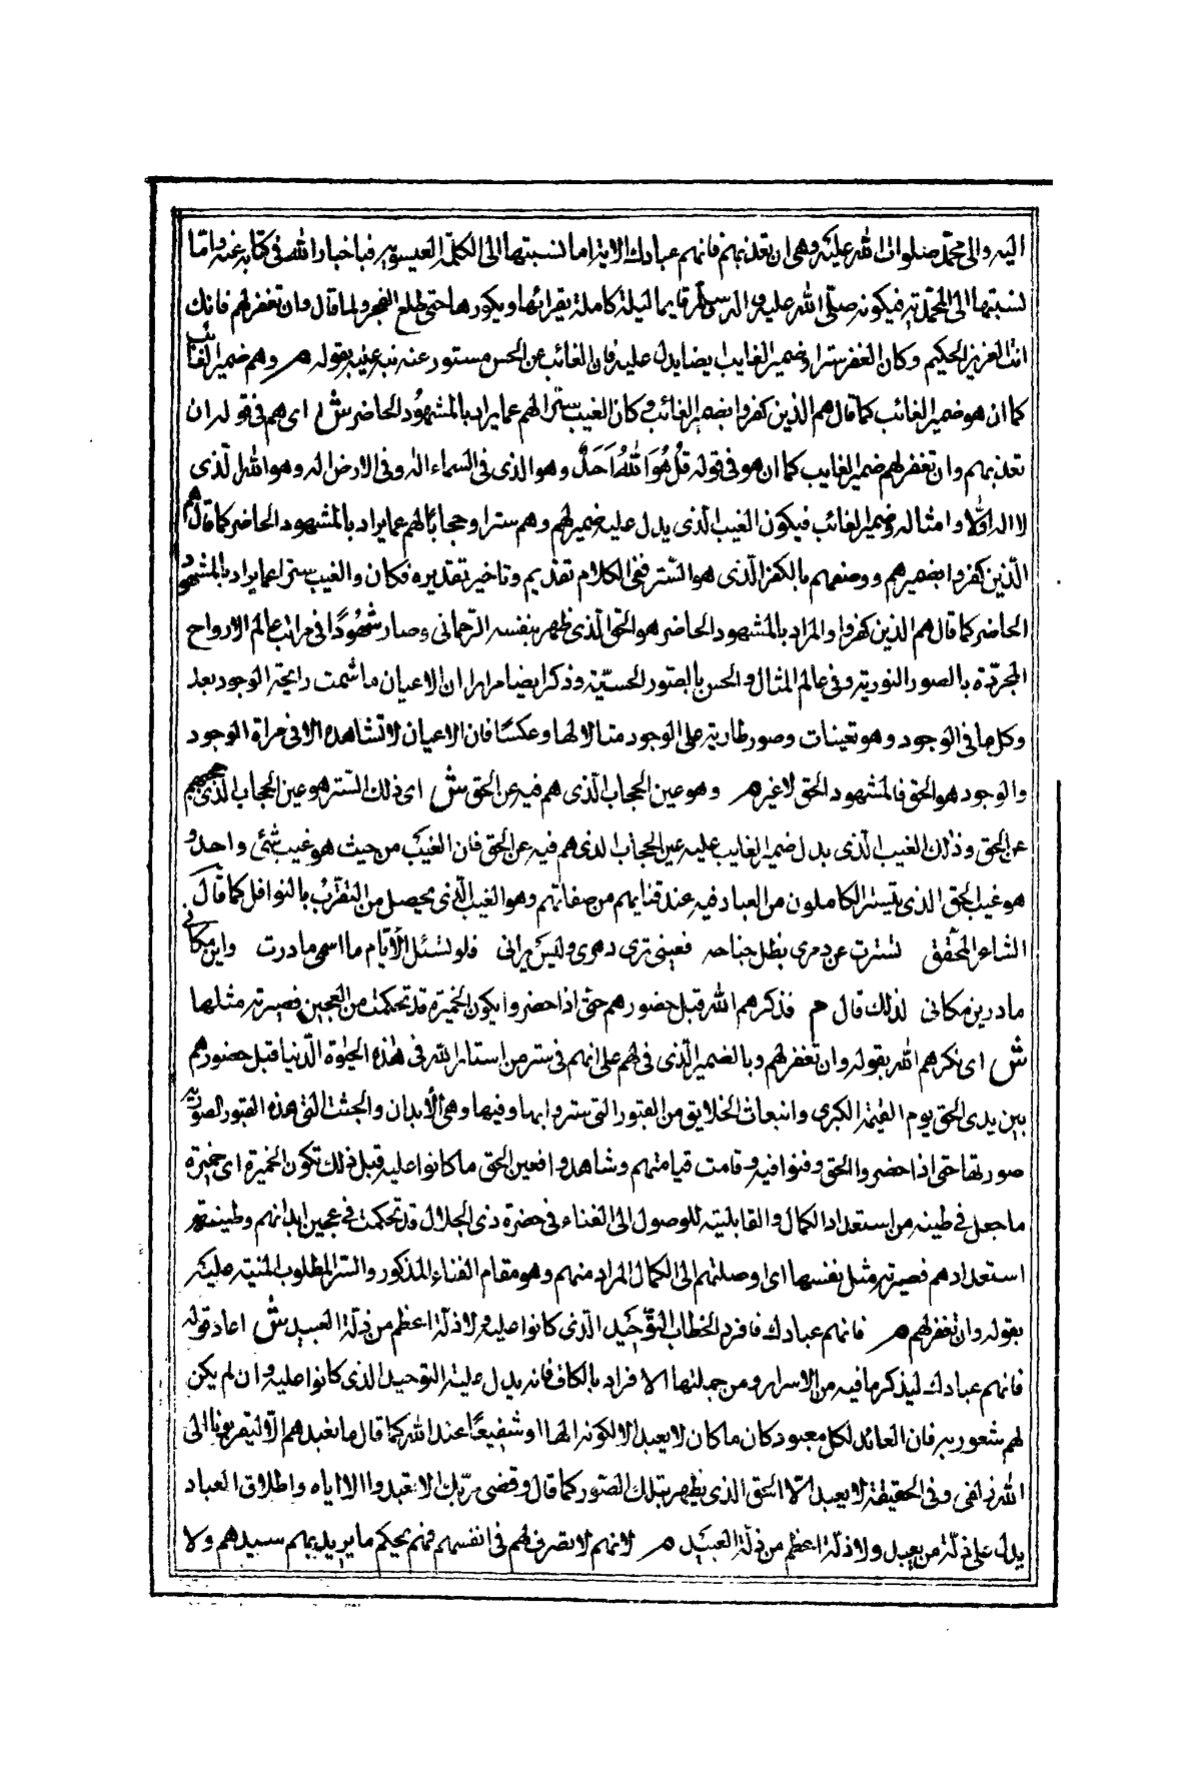 اليه والى محمد صلوات الله عليه وهى ان تعذبهم فانهم عبادك الاية اما نسبتها الى الكلمة العيسوية فباخبار الله فى كتابه عنه واما
نسبتها الى المحمدية فيكونه صلّى الله عليه واله وسلم قايما ليلة كاملة يقرائها ويكررها حتى طلع الفجر ولما قال وان تغفر لهم فانك
انت العزيز الحكيم وكان الغفر سترا وضمير الغايب ايضا يدل عليه فان الغائب عن الحس مستور عنه نبه عليه بقوله م وهم ضمير الغائب
كما ان هو ضمير الغائب كما قال هم الذين كفروا بضمير الغائب وكان الغيب سترا لهم عما يراد بالمشهود الحاضر ش اى هم فى قوله ان
تعذبهم وان تغفر لهم ضمير الغايب كما ان هو فى قوله قُل هُوَ اللهُ اَحَدٌ وهو الذى فى السماء اله وفى الارض اله وهو الله الّذى
لا اله الّا هو وامثاله ضمير الغائب فيكون الغيب الّذى يدل عليه ضمير لهم وهم سترا وحجابا لهم عما يراد بالمشهود الحاضر كما قال هم
الّذين كفروا بضميرهم ووصفهم بالكفر الّذى هو السّتر ففى الكلام تقديم وتاخير تقديره فكان والغيب سترا عما يراد بالمشهود
الحاضر كما قال هم الذين كفروا والمراد بالمشهود الحاضر هو الحق الّذى ظهر بنفسه الرّحمانى وصار شهُودًا فى مراتب عالم الارواح
المجرّدة بالصور النورية وفى عالم المثال والحس بالصّور الحسيّة وذكر ايضا مرارا ان الاعيان ما شمت رائحة الوجود بعد
وكل ما فى الوجود وهو تعينات وصور طارية على الوجود مثالا لها وعكسًا فان الاعيان لا تشاهد الا فى مراة الوجود
والوجود هو الحق فالمشهود الحق لا غير م وهو عين الحجاب الّذى هم فيه عن الحق ش اى ذلك السّتر هو عين الحجاب الّذى حجبهم
عن الحق وذلك الغيب الّذى يدل ضمير الغايب عليه عين الحجاب الذى هم فيه عن الحق فان الغيب من حيث هو غيب شئى واحد و
هو غيب الحق الذى يتستر الكاملون من العباد فيه عند فنايهم من صفاتهم وهو الغيب الّذى يحصل من التقرّب بالنوافل كما قال
الشاعر المحقق تسترت عن دهرى بظل جناحه فعينى ترى دهرى وليس يرانى فلو تسئل الأيّام ما اسمى ما درت واين مكانى
ما درين مكانى لذلك قال م فذكرهم الله قبل حضورهم حتى اذا حضروا يكون الخميرة قد تحكمت من العجين فصيرته مثلها
ش اى ذكرهم الله بقوله وان تغفر لهم وبالضمير الّذى فى لهم على انهم فى ستر من استار الله فى هذه الحيوة الدّنيا قبل حضورهم
بين يدى الحق يوم القيمة الكبرى وانبعاث الخلايق من القبور التى ستروا بها وفيها وهى الأبدان والجثث التى هذه القبور الصورية
صورتها حتى اذا حضروا الحق وفنوا فيه وقامت قيامتهم وشاهدوا فعين الحق ما كانوا عليه قبل ذلك تكون الخميرة اى خميرة
ما جعل فى طينه من استعداد الكمال والقابلية للوصول الى الفناء فى حضرة ذى الجلال قد تحكمت فى عجين ابدانهم وطينة
استعدادهم فصيرته مثل نفسها اى اوصلتهم الى الكمال المراد منهم وهو مقام الفناء المذكور والستر المطلوب المنبّه عليه
بقوله وان تغفر لهم م فانهم عبادك فافرد الخطاب للتّوحيد الّذى كانوا عليه ولا ذلّة اعظم من ذلّة العبيد ش اعاد قوله
فانهم عبادك ليذكر ما فيه من الاسرار ومن جملتها الافراد بالكاف فانه يدل عليه التوحيد الذى كانوا عليه وان لم يكن
لهم شعور به فان العابد لكل معبود كان ما كان لا يعبد الا لكونه الها او شفيعًا عند الله كما قال ما نعبدهم الّا ليقربونا الى
الله زلفى وفى الحقيقة لا يعبد الّا الحق الذى يظهر بتلك الصّور كما قال وقضى ربّك الا تعبدوا الا اياه واطلاق العباد
يدل على ذلّة من يعبد ولا ذلّة اعظم من ذلّة العبيد م لانهم لا تصرف لهم فى انفسهم فهم بحكم ما يريد بهم سيدهم ولا